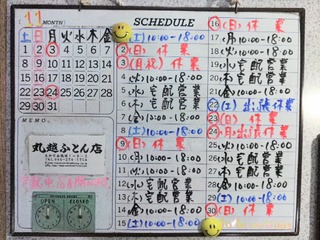 11 MONTH SCHEDULE
土 日 月 火 水 木 金
1 2 3 4 5 6 7
8 9 10 11 12 13 14
15 16 17 18 19 20 21
22 23 24 25 26 27 28
29 30 31
MEMO
丸越ふとん店
OPEN CLOSED
(土) 10:00-18:00
2 (日) 休業
3 (月祝) 休業
4 火 10:00-18:00
5 水 宅配営業
6 木 宅配営業
7 金 10:00-18:00
8 (土) 10:00-18:00
9 (日) 休業
10 月 10:00-18:00
11 火 10:00-18:00
12 水 宅配営業
13 木 宅配営業
14 金 10:00-18:00
15 (土) 10:00-18:00
16 (日) 休業
17 月 10:00-18:00
18 火 10:00-18:00
19 水 宅配営業
20 木 宅配営業
21 金 10:00-18:00
22 (土) 出張休業
23 (日) 休業
24 月 出張休業
25 火 10:00-18:00
26 水 宅配営業
27 木 宅配営業
28 金 10:00-18:00
29 (土) 10:00-18:00
30 (日) 休業